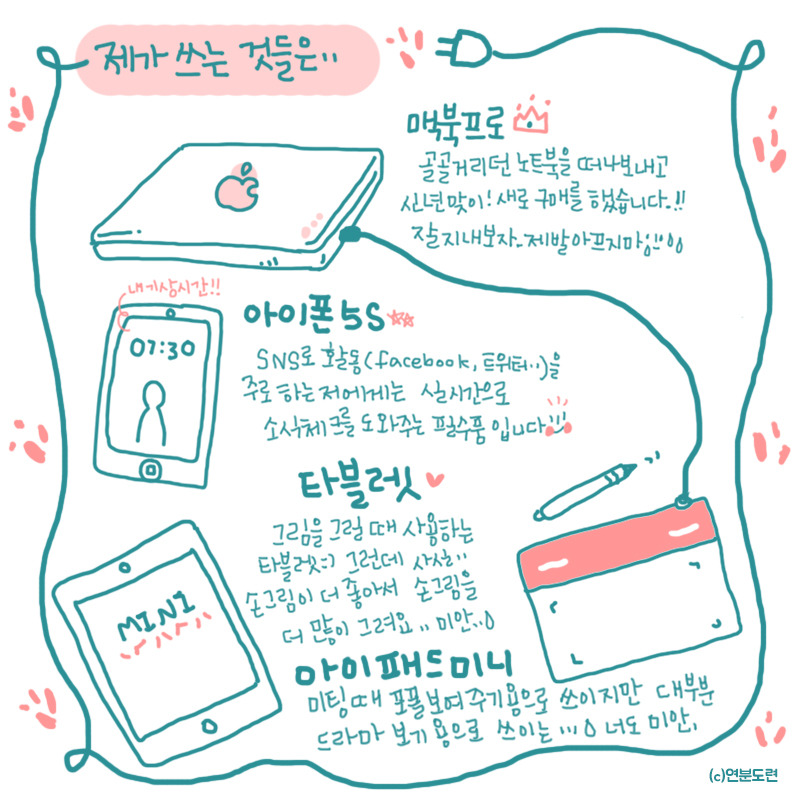 제가 쓰는 것들은..
맥북프로
골골거리던 노트북을 떠나보내고
신년맞이! 새로 구매를 했습니다..!!
잘 지내보자.. 제발 아프지마;;!!
내 기상시간!!
07:30
아이폰 5S
SNS로 활동(facebook, 트위터..)을
주로 하는 저에게는 실시간으로
소식체크를 도와주는 필수품 입니다!!
타블렛
그림을 그릴 때 사용하는
타블렛=) 그런데 사실..
손그림이 더 좋아서 손그림을
더 많이 그려요.. 미안..
MINI
아이패드미니
미팅때 포폴보여주기용으로 쓰이지만 대부분
드라마 보기 용으로 쓰이는... 너도 미안,
(c)연분도련